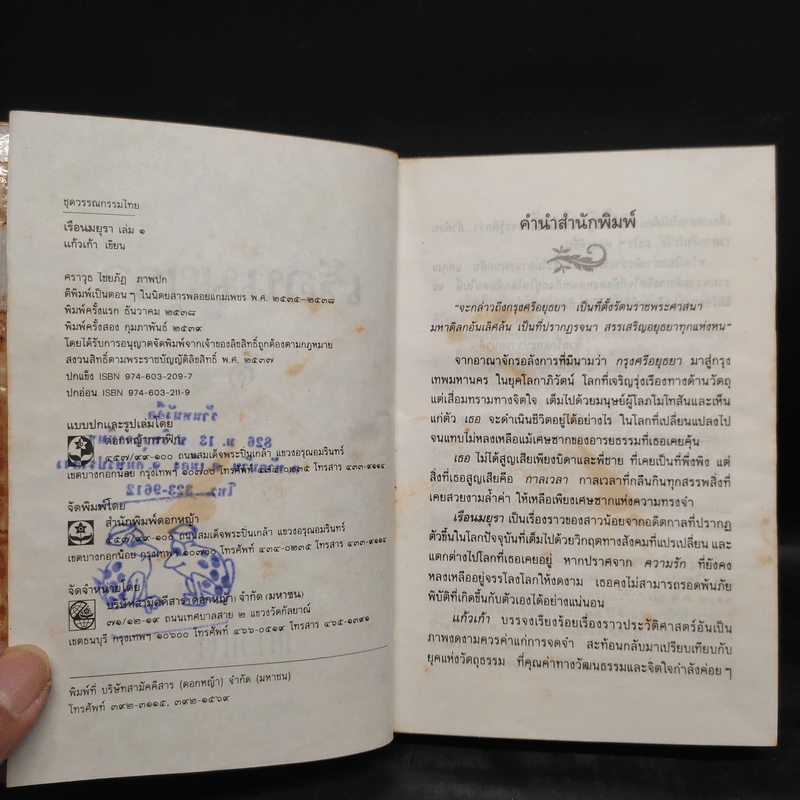 ชุดวรรณกรรมไทย
เรือนมยุรา เล่ม ๑
แก้วเก้า เขียน
ศราวุธ ไชยภัฏ ภาพปก
ตีพิมพ์เป็นตอนๆ ในนิตยสารพลอยแกมเพชร พ.ศ. ๒๕๓๕-๒๕๓๘
พิมพ์ครั้งแรก ธันวาคม ๒๕๓๘
พิมพ์ครั้งสอง กุมภาพันธ์ ๒๕๓๙
โดยได้รับการอนุญาตจัดพิมพ์จากเจ้าของลิขสิทธิ์ถูกต้องตามกฎหมาย
สงวนลิขสิทธิ์ตามพระราชบัญญัติลิขสิทธิ์ พ.ศ. ๒๕๓๗
ปกแข็ง ISBN 974-603-209-7
ปกอ่อน ISBN 974-603-211-9
แบบปกและรูปเล่มโดย
ดอกหญ้ากราฟิก
๔๕๗/๙๙-๑๐๐ ถนนสมเด็จพระปิ่นเกล้า แขวงอรุณอมรินทร์
เขตบางกอกน้อย กรุงเทพฯ ๑๐๗๐๐ โทรสาร ๔๓๓-๙๑๑๔
ร้านหนังสือ
826 ม. 13
โทร. 323-9612
จัดพิมพ์โดย
สำนักพิมพ์ดอกหญ้า
๔๕๗/๙๙-๑๐๐ ถนนสมเด็จพระปิ่นเกล้า แขวงอรุณอมรินทร์
เขตบางกอกน้อย กรุงเทพฯ ๑๐๗๐๐ โทรศัพท์ ๔๓๔-๐๒๓๕ โทรสาร ๔๓๓-๙๑๑๔
จัดจำหน่ายโดย
บริษัทสามัคคีสาร (ดอกหญ้า) จำกัด (มหาชน)
๗๑/๑๒-๑๙ ถนนเทศบาลสาย ๒ แขวงวัดกัลยาณ์
เขตธนบุรี กรุงเทพฯ ๑๐๖๐๐ โทรศัพท์ ๔๖๖-๐๕๑๙ โทรสาร ๔๖๕-๑๓๙๑
พิมพ์ที่ บริษัทสามัคคีสาร (ดอกหญ้า) จำกัด (มหาชน)
โทรศัพท์ ๓๙๒-๓๑๑๕, ๓๙๒-๑๕๖๙
คำนำสำนักพิมพ์
"จะกล่าวถึงกรุงศรีอยุธยา เป็นที่ตั้งรัตนราชพระศาสนา
มหาดิลกอันเลิศล้น เป็นที่ปรากฏรจนา สรรเสริญอยุธยาทุกแห่งหน"
จากอาณาจักรอลังการที่มีนามว่า กรุงศรีอยุธยา มาสู่กรุง
เทพมหานคร ในยุคโลกาภิวัตน์ โลกที่เจริญรุ่งเรืองทางด้านวัตถุ
แต่เสื่อมทรามทางจิตใจ เต็มไปด้วยมนุษย์ผู้โลภโมโทสันและเห็น
แก่ตัว เธอ จะดำเนินชีวิตอยู่ได้อย่างไร ในโลกที่เปลี่ยนแปลงไป
จนแทบไม่หลงเหลือแม้เศษซากของอารยธรรมที่เธอเคยคุ้น
เธอ ไม่ได้สูญเสียเพียงบิดาและพี่ชาย ที่เคยเป็นที่พึ่งพิง แต่
สิ่งที่เธอสูญเสียคือ กาลเวลา กาลเวลาที่กลืนกินทุกสรรพสิ่งที่
เคยสวยงามล้ำค่า ให้เหลือเพียงเศษซากแห่งความทรงจำ
เรือนมยุรา เป็นเรื่องราวของสาวน้อยจากอดีตกาลที่ปรากฏ
ตัวขึ้นในโลกปัจจุบันที่เต็มไปด้วยวิกฤตทางสังคมที่แปรเปลี่ยน และ
แตกต่างไปโลกที่เธอเคยอยู่ หากปราศจาก ความรัก ที่ยังคง
หลงเหลืออยู่จรรโลงโลกให้งดงาม เธอคงไม่สามารถรอดพ้นภัย
พิบัติที่เกิดขึ้นกับตัวเองได้อย่างแน่นอน
แก้วเก้า บรรจงเรียงร้อยเรื่องราวประวัติศาสตร์อันเป็น
ภาพงดงามควรค่าแก่การจดจำ สะท้อนกลับมาเปรียบเทียบกับ
ยุคแห่งวัตถุธรรม ที่คุณค่าทางวัฒนธรรมและจิตใจกำลังค่อยๆ